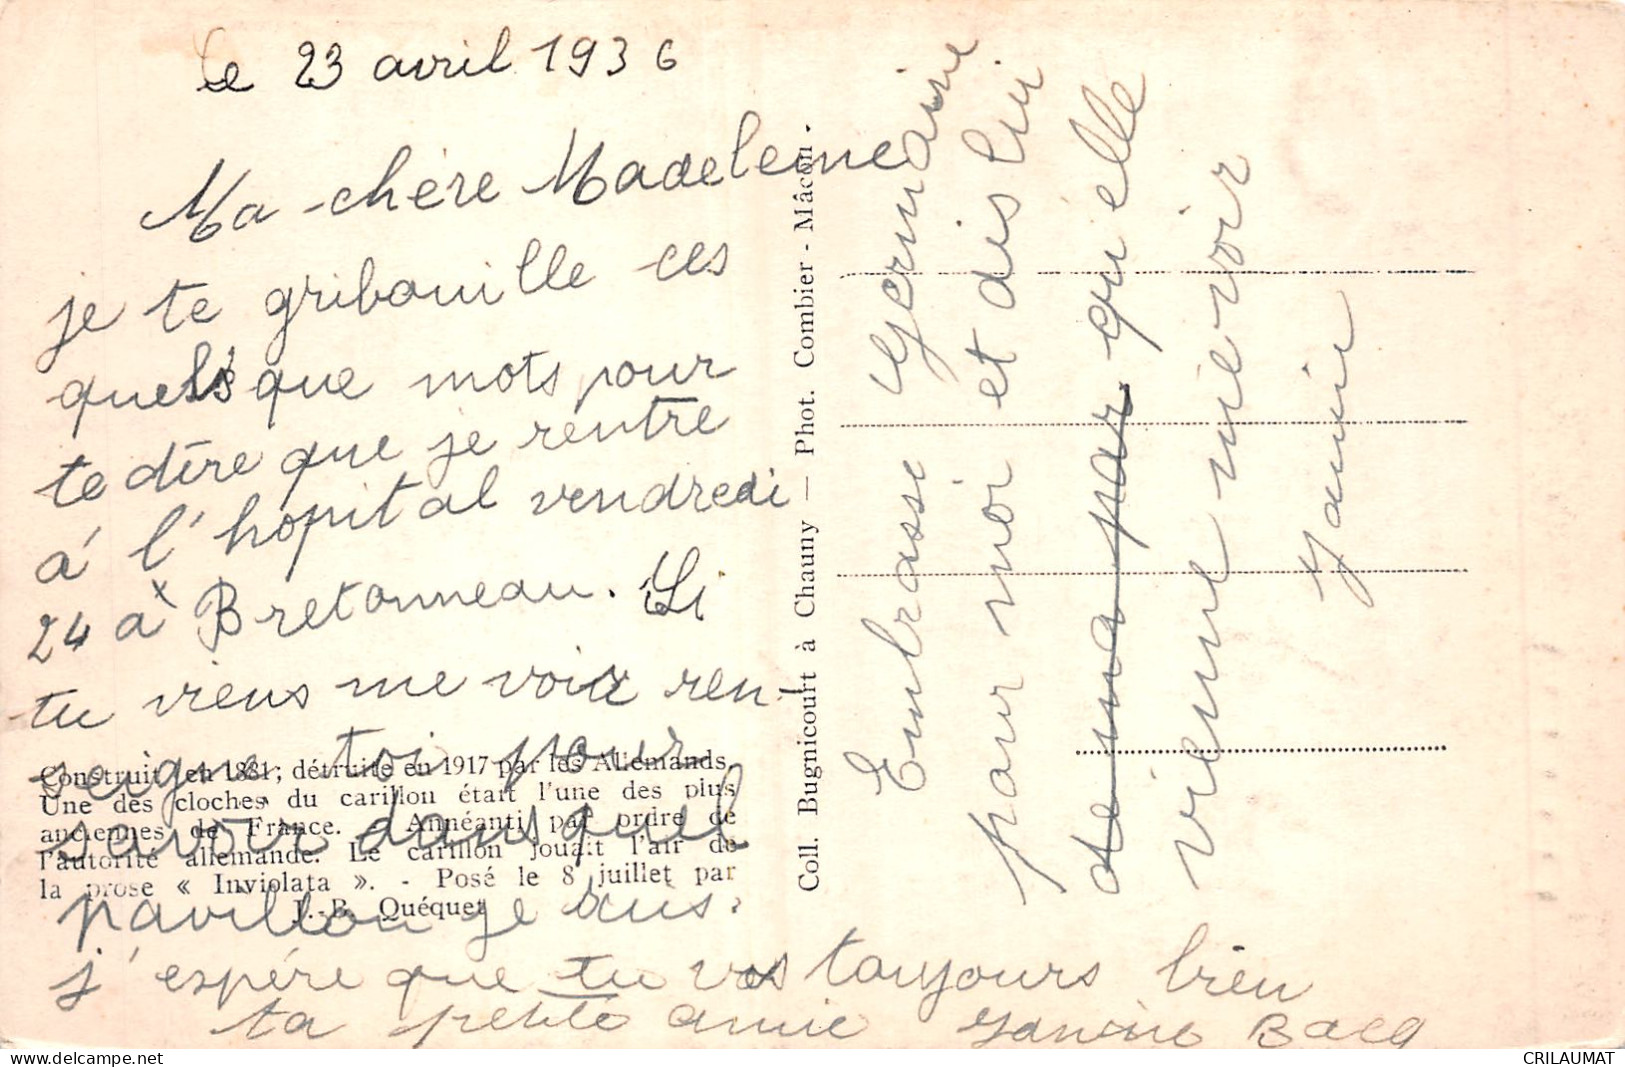 le 23 avril 1936
Ma chère Madeleine
je te gribouille ces
quelsque mots pour
te dire que je rentre
á l'hopital vendredi
24 à Bretonneau. Si
tu viens me voir ren-
seigne toi pour
savoir dans quel
pavillon je suis.
j'espére que tu vas toujours bien
ta petite amie Janine
Construit en 1831; détruite en 1917 par les Allemands.
Une des cloches du carillon était l'une des plus
anciennes de France. - Annéanti par ordre de
l'autorité allemande. Le carillon jouait l'air de
la prose « Inviolata ». - Posé le 8 juillet par
J.-B. Quéquet
Coll. Bugnicourt à Chauny — Phot. Combier - Mâcon -
Embrasse Germaine
pour moi et dis lui
de ma par qu'elle
vienne me voir
Janine
CRILAUMAT